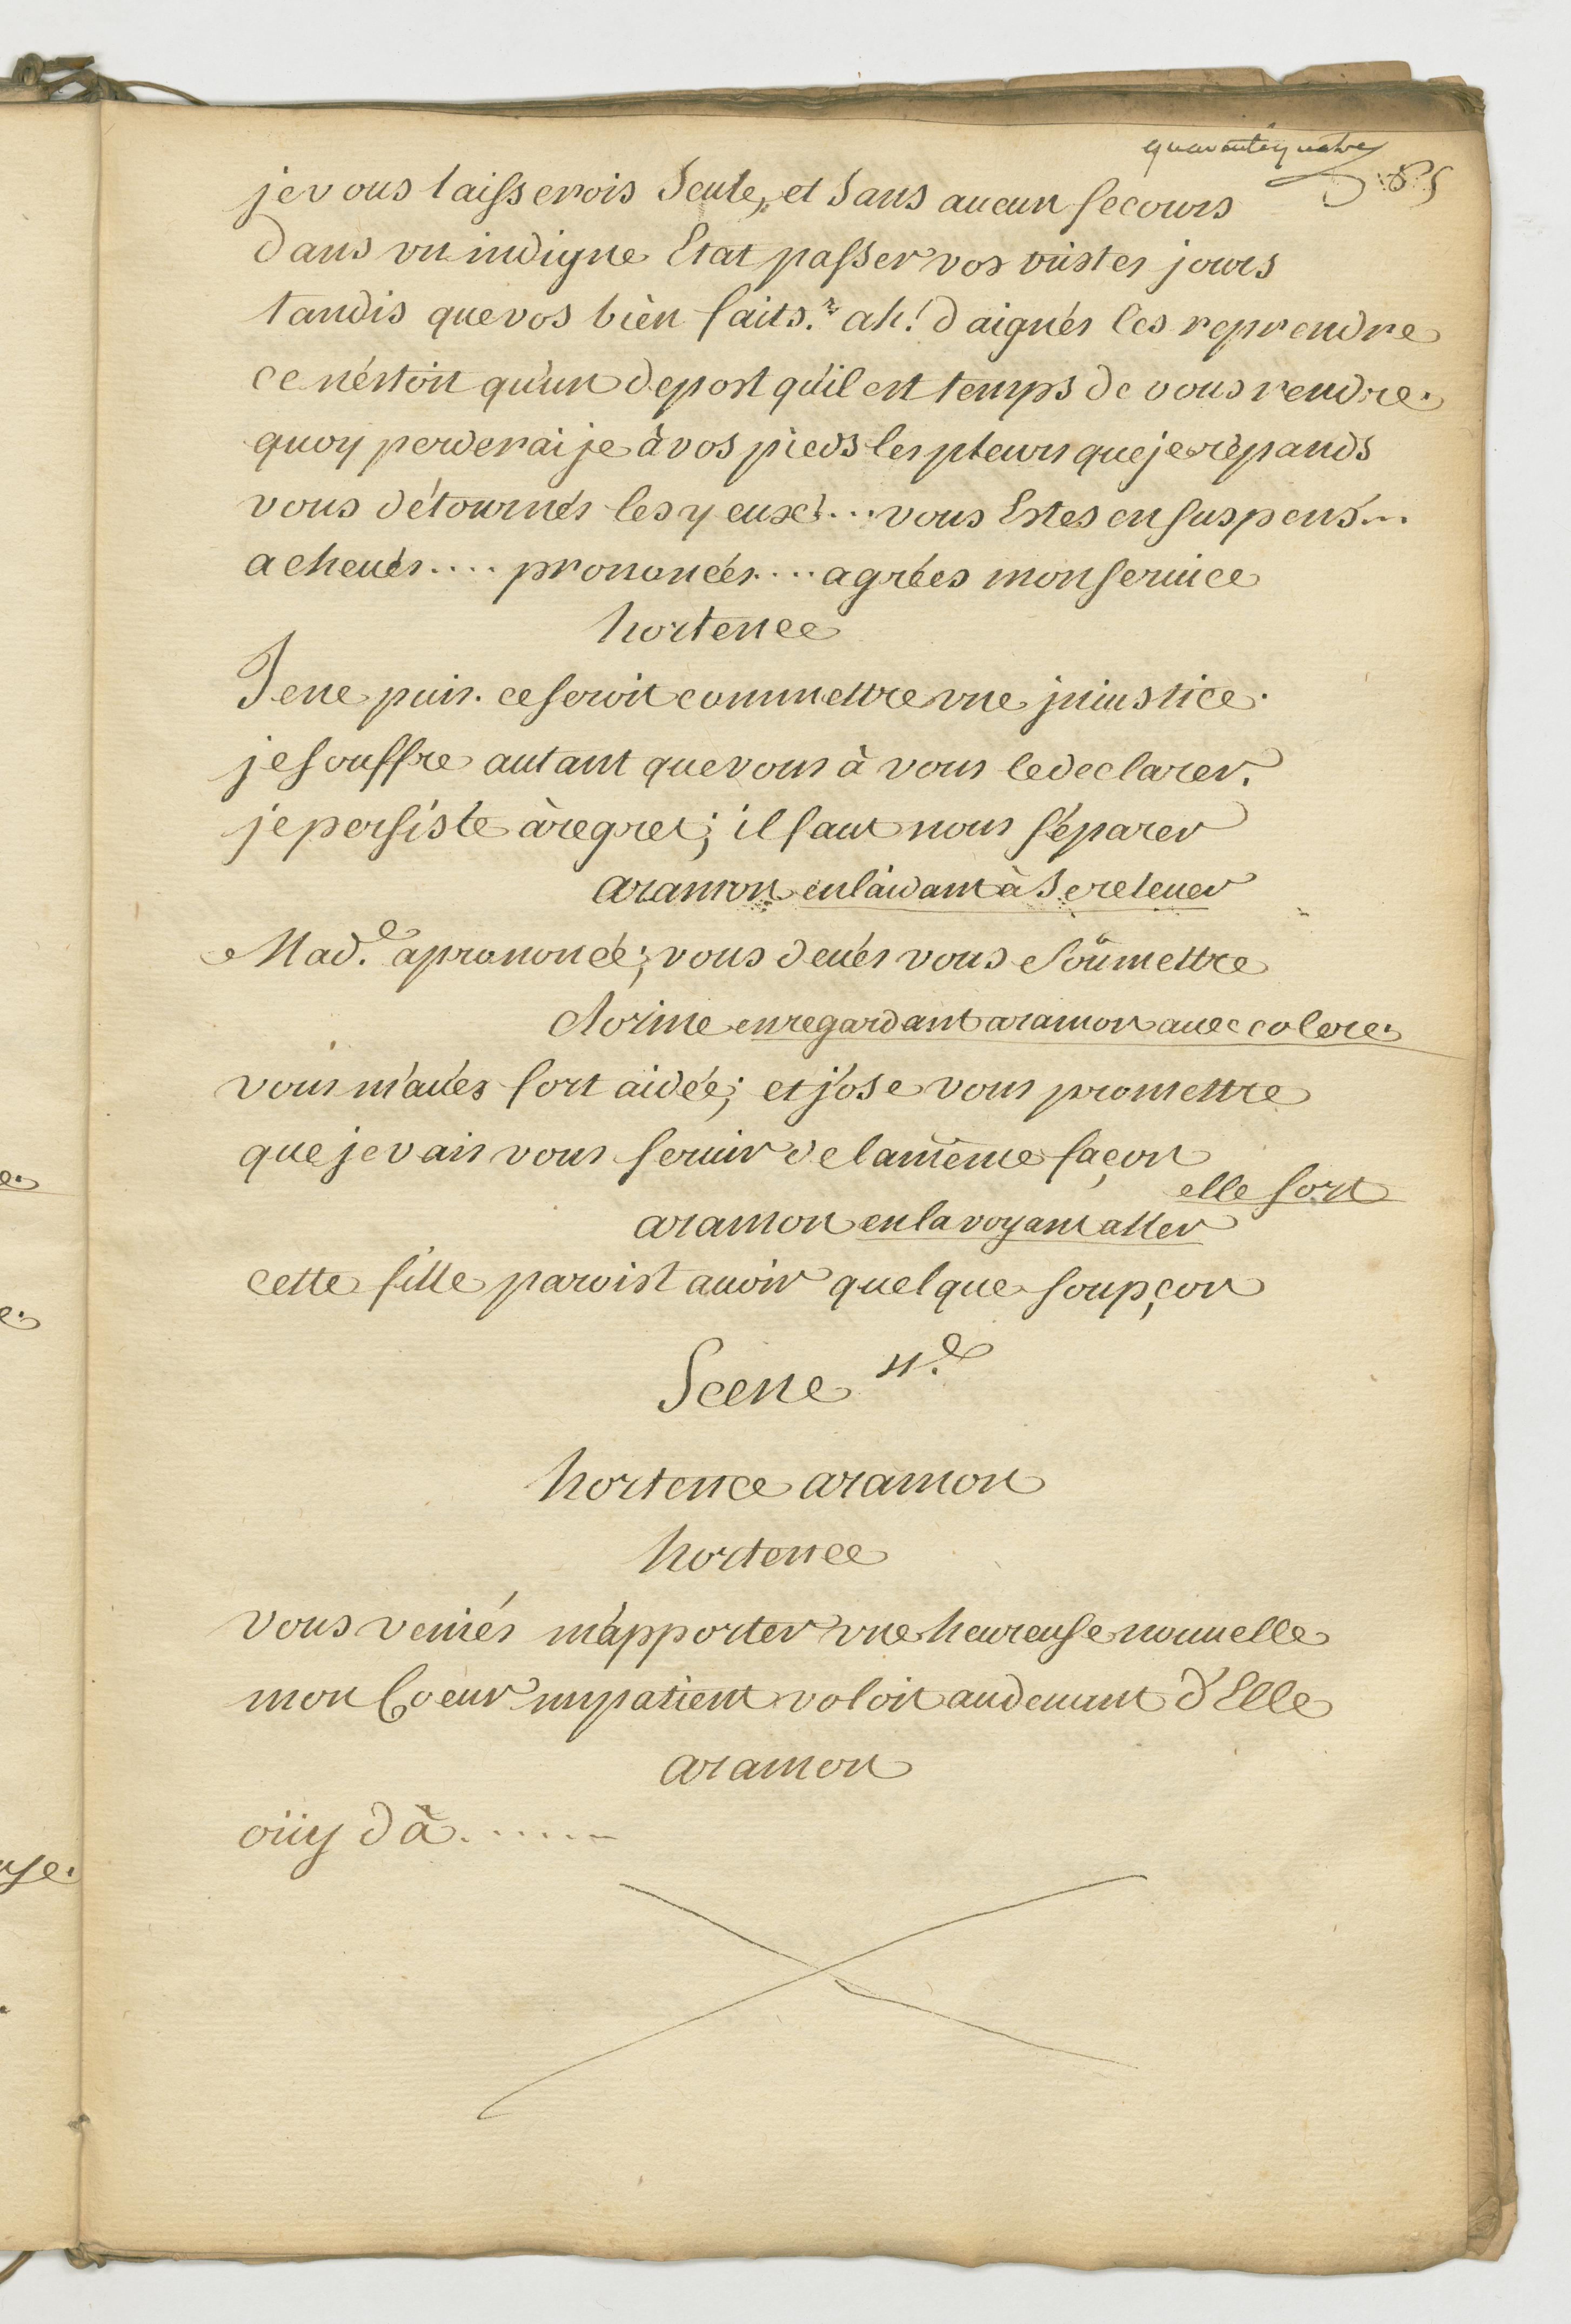 quarante quatre
85
je vous laisserois seule, et sans aucun secours
dans vn indigne Etat passer vos tristes jours
tandis que vos bièn faits.. ah! daignés les reprendre
ce n'éstoit qu'un depost qu'il est temps de vous rendre.
quoy perderai je à vos pieds les pleurs que je répands
vous détournés les yeux!... vous Estes en suspens...
acheués.... prononcés.... agréés mon seruice
hortence
Je ne puis. ce seroit commettre vne injustice.
je souffre autant que vous à vous le declarer.
je persiste à regret; il faut nous séparer
aramon en l'aidant à se releuer
Mad.e a prononcé; vous deués vous soûmettre
clorine en regardant aramon auec colere.
vous m'aués fort aidée; et j'ose vous promettre
que je vais vous seruir de la même façon
elle sort
aramon en la voyant aller
cette fille paroist auoir quelque soupçon
Scene 4.e
hortence aramon
hortence
vous veniés m'apporter vne heureuse nouuelle
mon Coeur impatient voloit audeuant d'Elle
aramon
oüy dà......